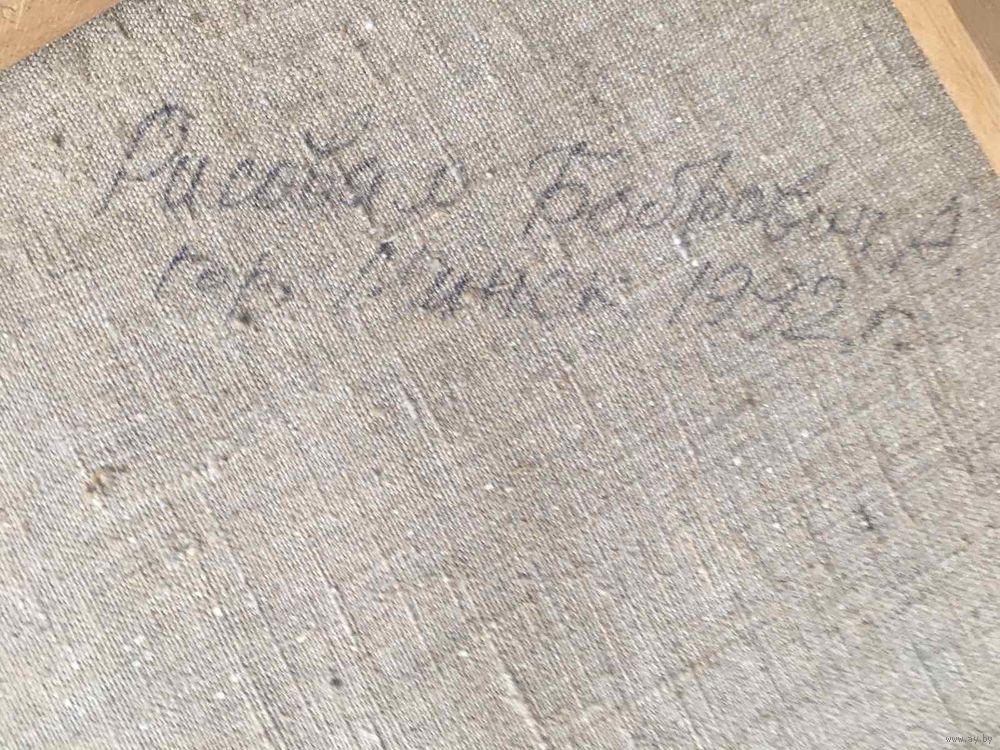 Рисовал Бобрович А.
гор. Минск 1992 г
www.ay.by